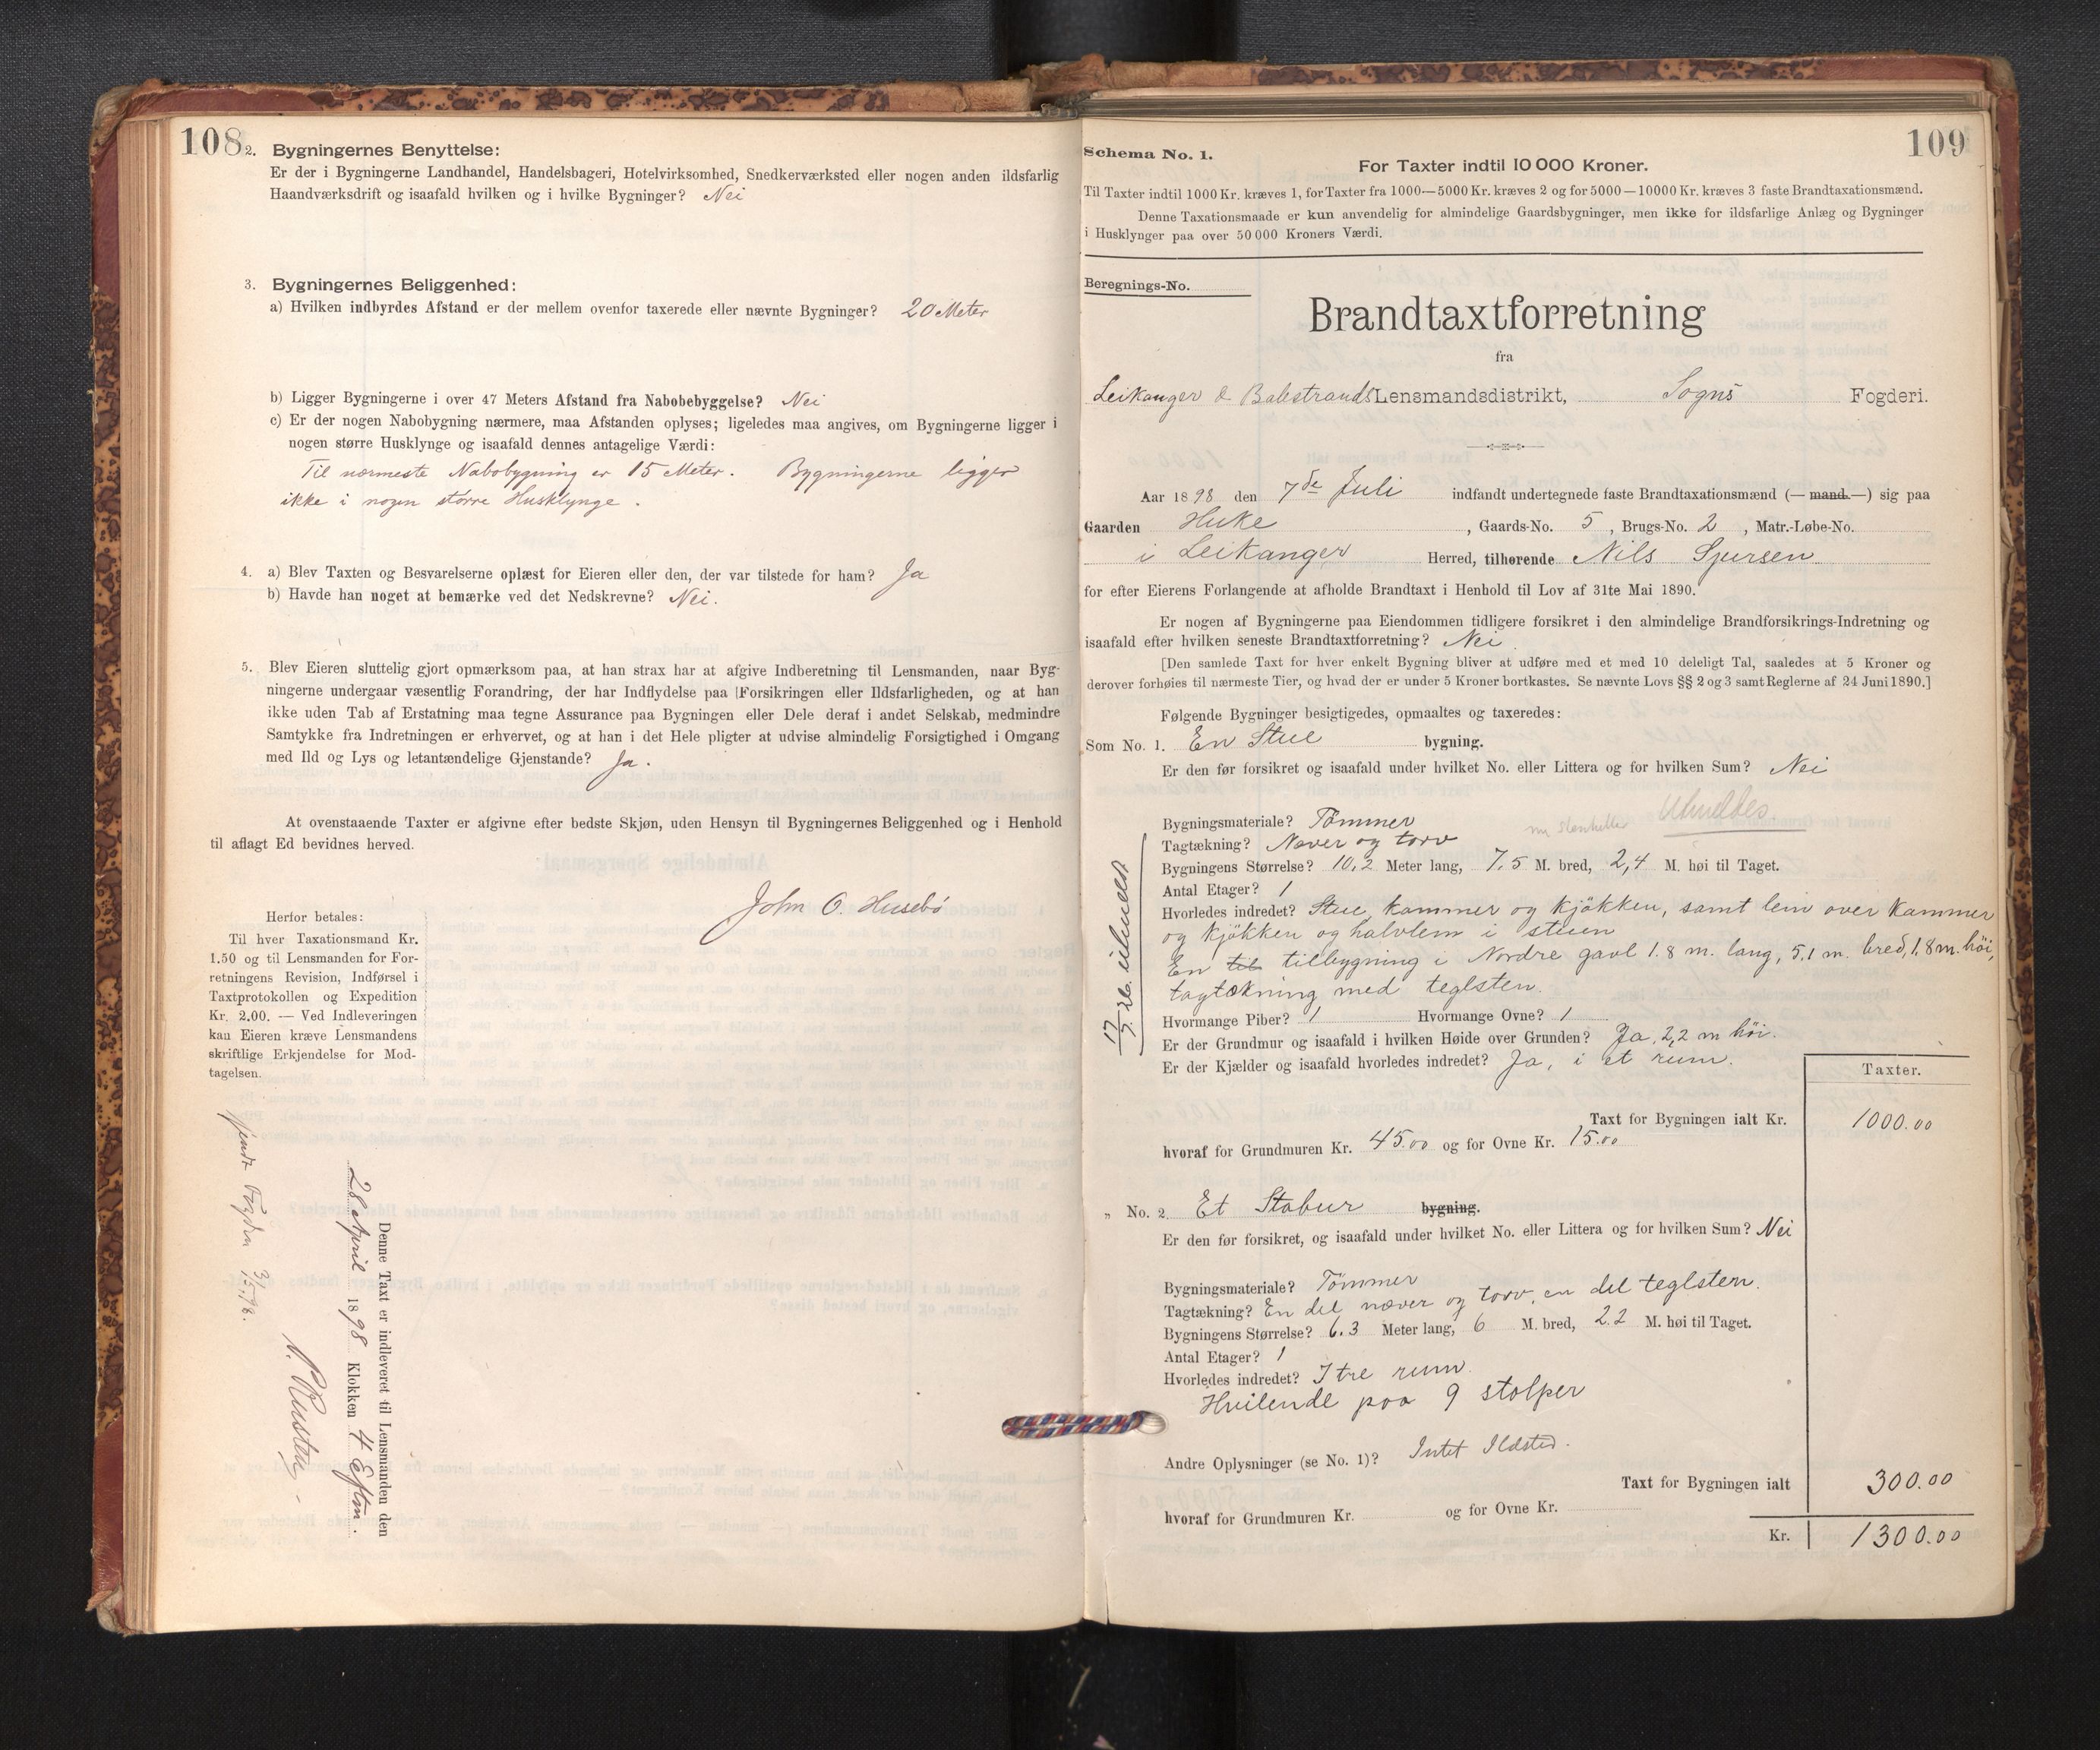 108
2. Bygningernes Benyttelse:
Er der i Bygningerne Landhandel, Handelsbageri, Hotelvirksomhed, Snedkerværksted eller nogen anden ildsfarlig
Haandværksdrift og isaafald hvilken og i hvilke Bygninger? Nei
3. Bygningernes Beliggenhed:
a) Hvilken indbyrdes Afstand er der mellem ovenfor taxerede eller nævnte Bygninger? 20 Meter
b) Ligger Bygningerne i over 47 Meters Afstand fra Nabobebyggelse? Nei
c) Er der nogen Nabobygning nærmere, maa Afstanden oplyses; ligeledes maa angives, om Bygningerne ligger i
nogen større Husklynge og isaafald dennes antagelige Værdi:
Til nærmeste Nabobygning er 15 Meter. Bygningerne ligger
ikke i nogen större Husklynge.
4. a) Blev Taxten og Besvarelserne oplæst for Eieren eller den, der var tilstede for ham? Ja
b) Havde han noget at bemærke ved det Nedskrevne? Nei.
5. Blev Eieren sluttelig gjort opmærksom paa, at han strax har at afgive Indberetning til Lensmanden, naar Byg-
ningerne undergaar væsentlig Forandring, der har Indflydelse paa Forsikringen eller Ildsfarligheden, og at han
ikke uden Tab af Erstatning maa tegne Assurance paa Bygningen eller Dele deraf i andet Selskab, medmindre
Samtykke fra Indretningen er erhvervet, og at han i det Hele pligter at udvise almindelig Forsigtighed i Omgang
med Ild og Lys og letantændelige Gjenstande? Ja.
At ovenstaaende Taxter er afgivne efter bedste Skjøn, uden Hensyn til Bygningernes Beliggenhed og i Henhold
til aflagt Ed bevidnes herved.
John O. Husebö
Herfor betales:
Til hver Taxationsmand Kr.
1.50 og til Lensmanden for For-
retningens Revision, Indførsel i
Taxtprotokollen og Expedition
Kr. 2.00. — Ved Indleveringen
kan Eieren kræve Lensmandens
skriftlige Erkjendelse for Mod-
tagelsen.
Denne Taxt er indleveret til Lensmanden den
28 April 1898 Klokken 4 Eftm.
109
Schema No. 1.
For Taxter indtil 10 000 Kroner.
Til Taxter indtil 1000 Kr. kræves 1, for Taxter fra 1000—5000 Kr. kræves 2 og for 5000—10000 Kr. kræves 3 faste Brandtaxationsmænd.
Denne Taxationsmaade er kun anvendelig for almindelige Gaardsbygninger, men ikke for ildsfarlige Anlæg og Bygninger
i Husklynger paa over 50 000 Kroners Værdi.
Beregnings-No.
Brandtaxtforretning
fra
Leikanger & Balestrands Lensmandsdistrikt, Sogns Fogderi.
Aar 1898 den 7de Juli indfandt undertegnede faste Brandtaxationsmænd (— mand —) sig paa
Gaarden Huke, Gaards-No. 5, Brugs-No. 2, Matr.-Løbe-No.
i Leikanger Herred, tilhørende Nils Sjursen
for efter Eierens Forlangende at afholde Brandtaxt i Henhold til Lov af 31te Mai 1890.
Er nogen af Bygningerne paa Eiendommen tidligere forsikret i den almindelige Brandforsikrings-Indretning og
isaafald efter hvilken seneste Brandtaxtforretning? Nei
[Den samlede Taxt for hver enkelt Bygning bliver at udføre med et med 10 deleligt Tal, saaledes at 5 Kroner og
derover forhøies til nærmeste Tier, og hvad der er under 5 Kroner bortkastes. Se nævnte Lovs §§ 2 og 3 samt Reglerne af 24 Juni 1890.]
Følgende Bygninger besigtigedes, opmaaltes og taxeredes:
Som No. 1. En Stue bygning.
Er den før forsikret og isaafald under hvilket No. eller Littera og for hvilken Sum? Nei
Udmeldes
Bygningsmateriale? Tömmer
Tagtækning? Næver og torv
nu stenheller
Bygningens Størrelse? 10,2 Meter lang, 7,5 M. bred, 2,4 M. høi til Taget.
Antal Etager? 1
Hvorledes indredet? Stue, kammer og kjökken, samt lem over kammer
og kjökken og halvlem i stuen
En til tilbygning i Nordre gavl 1.8 m. lang, 5,1 m. bred, 1,8 m. höi,
tagtækning med teglsten.
Hvormange Piber? 1 Hvormange Ovne? 1
Er der Grundmur og isaafald i hvilken Høide over Grunden? Ja, 2,2 m höi.
Er der Kjælder og isaafald hvorledes indredet? Ja, i et rum.
17/5 26. utmeldt
Taxter.
Taxt for Bygningen ialt Kr. 1000.00
hvoraf for Grundmuren Kr. 45.00 og for Ovne Kr. 15.00
„ No. 2. Et Stabur bygning.
Er den før forsikret, og isaafald under hvilket No. eller Littera og for hvilken Sum? Nei
Bygningsmateriale? Tömmer
Tagtækning? En del næver og torv, en del teglsten.
Bygningens Størrelse? 6.3 Meter lang, 6 M. bred, 2.2 M. høi til Taget.
Antal Etager? 1
Hvorledes indredet? I tre rum.
Hvilende paa 9 stolper
Andre Oplysninger (se No. 1)? Intet Ildsted.
Taxt for Bygningen ialt 300.00
hvoraf for Grundmuren Kr. og for Ovne Kr.
Kr. 1300.00